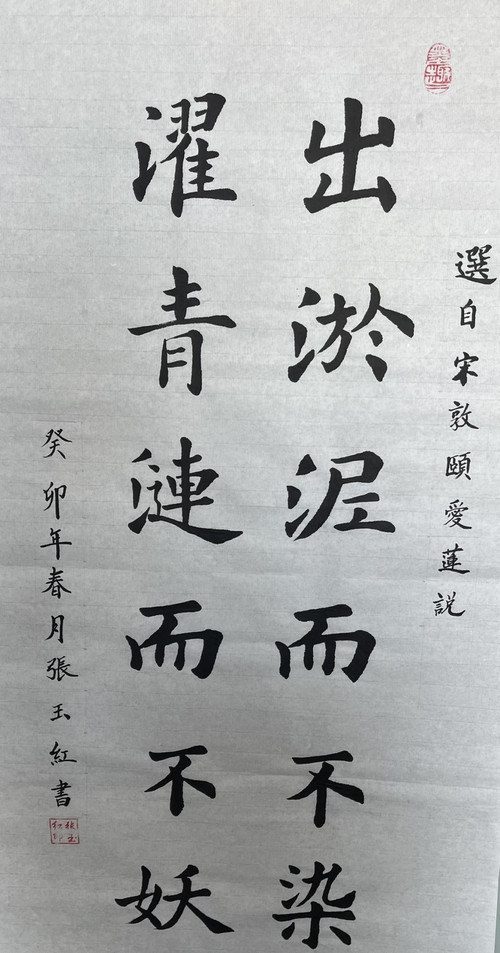 選自宋敦頤愛蓮説
出淤泥而不染
濯青漣而不妖
癸卯年春月張玉紅書